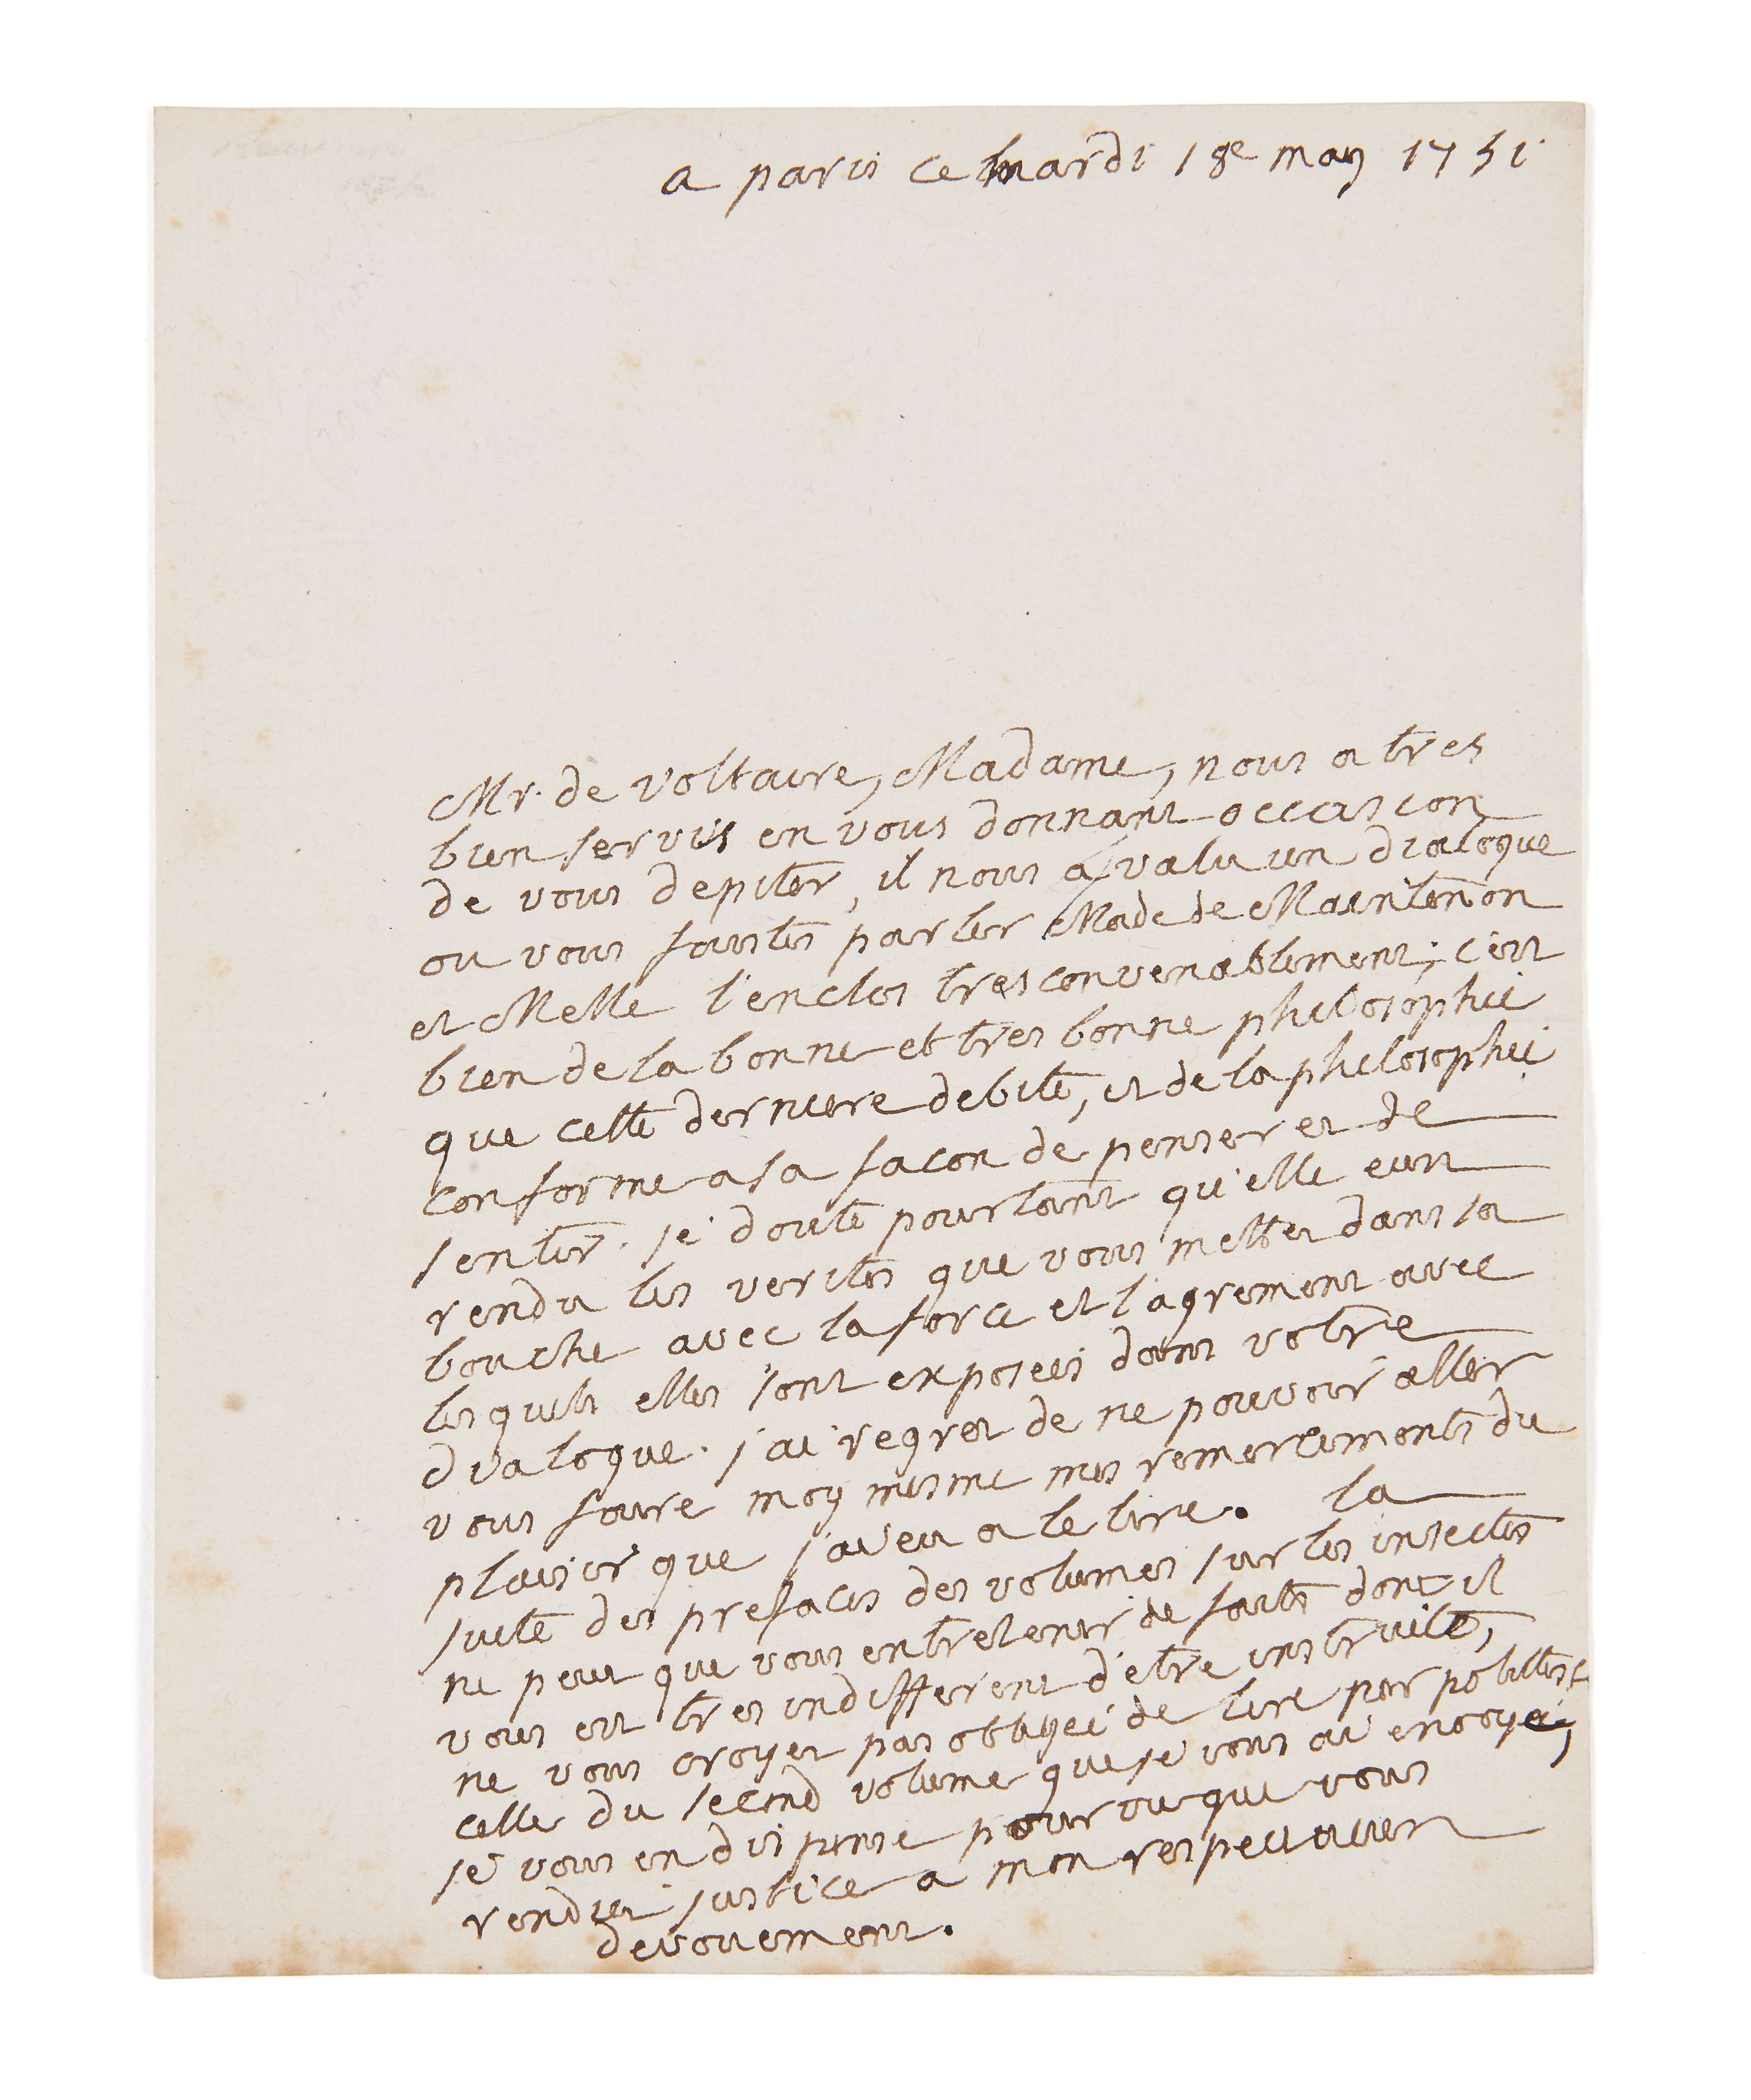 a paris ce mardi 18e may 1751
Mr. de Voltaire, Madame, nous a tres
bien servis en vous donnant occasion
de vous depiter, il nous a valu un dialogue
ou vous faites parler Made de Maintenon
et Melle l'enclos tres convenablement; c'est
bien de la bonne et tres bonne philosophie
que cette derniere debite, et de la philosophie
conforme a sa facon de penser et de
sentir. je doute pourtant qu'elle eust
rendu les verites que vous mettes dans sa
bouche avec la force et l'agrement avec
lesquels elles sont exposees dans votre
dialogue. j'ai regret de ne pouvoir aller
vous faire moy mesme mes remerciments du
plaisir que j'ai eu a le lire. la
suite des prefaces des volumes sur les insectes
ne peut que vous entretenir de faits dont il
vous est tres indifferent d'etre instruite,
ne vous croyes pas obligée de lire par politesse
celle du second volume que je vous ai envoyé,
je vous en dispense pourvu que vous
rendies justice a mon respectueux
devouement.